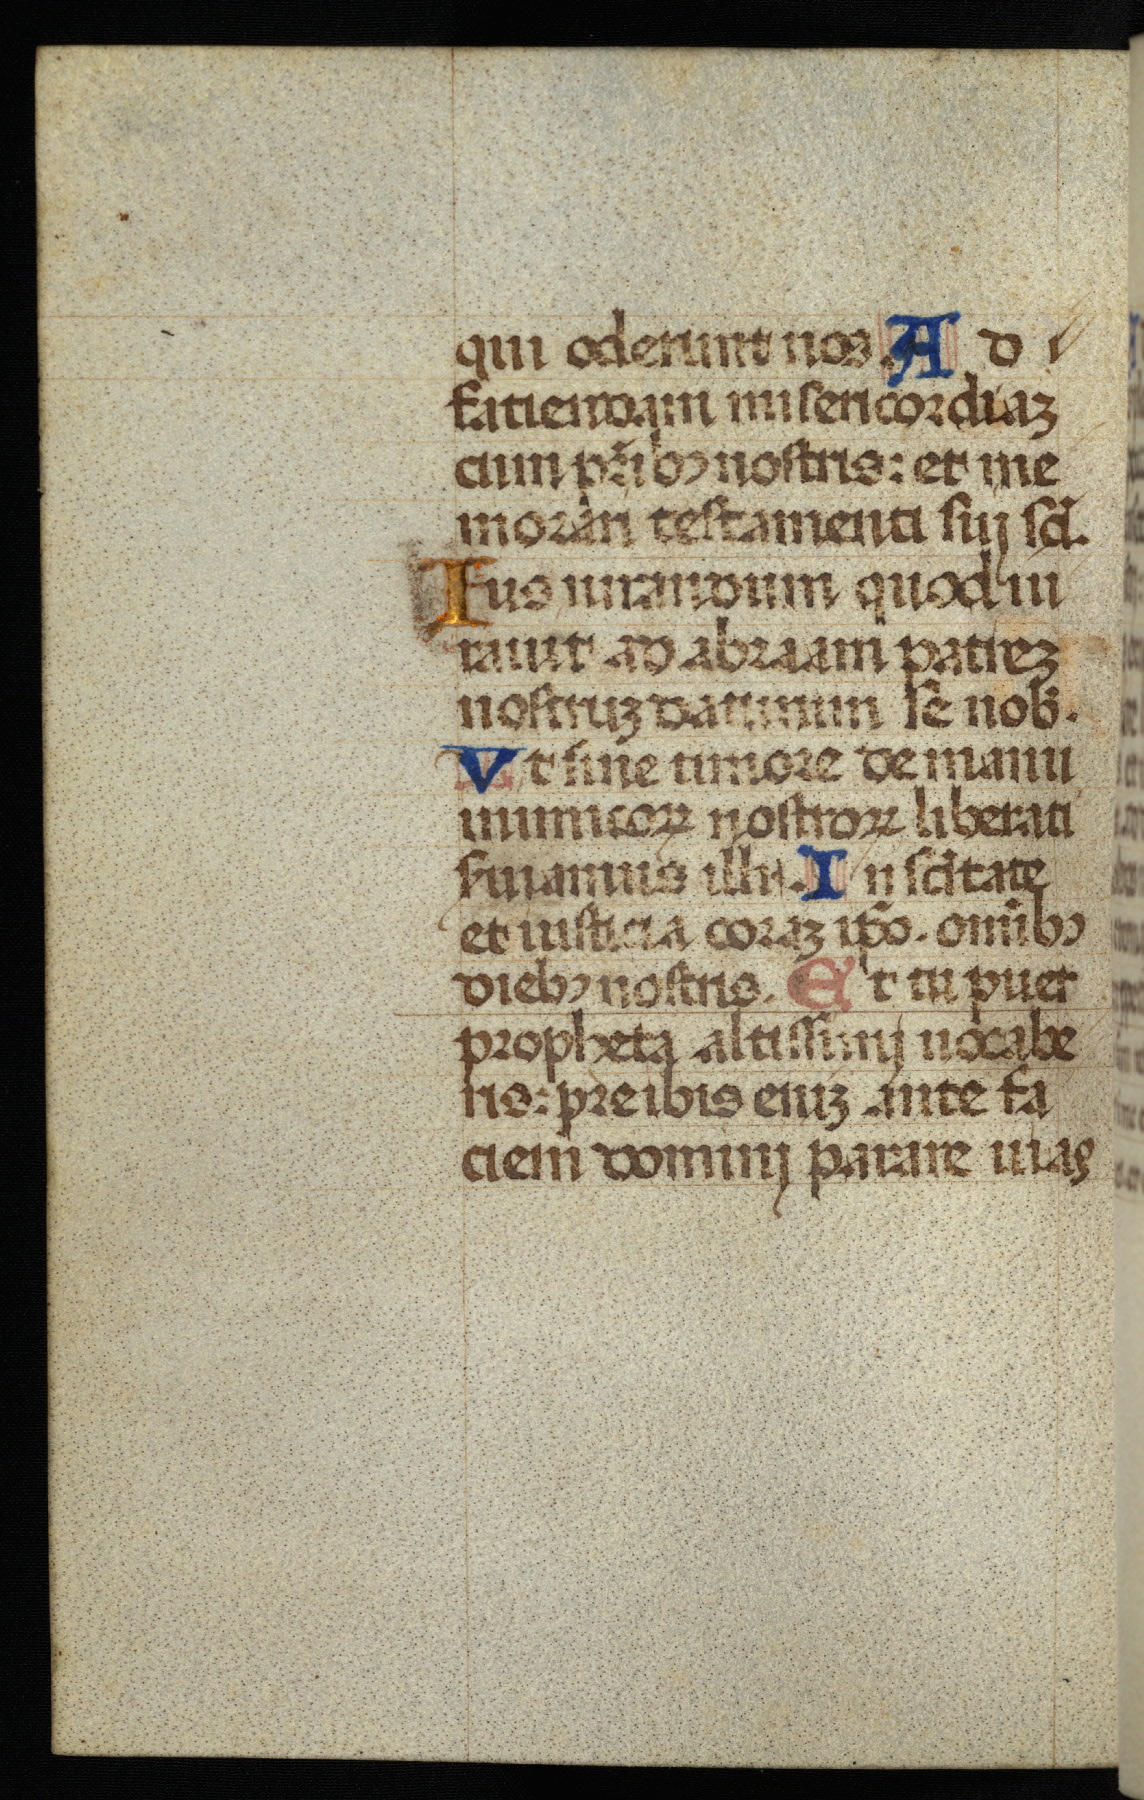 qui oderunt nos. A d
fatiendam misericordiaꝫ
cum pr̃ibꝰ nostris: et me
morari testamenti suij sc̃i.
Ius iurandum quod iu
rauit ad abraam patreꝫ
nostruꝫ daturum se nob̃.
Vt sine timore de manu
inimicoꝝ nostroꝝ liberati
ẜuiamus illi. In sc̃itate
et iusticia coraꝫ ip̃o. omĩbꝰ
diebꝰ nostris. Et tu puer
propheta altissimj uocabe
ris: preibis eniꝫ ante fa
ciem dominj parare uias